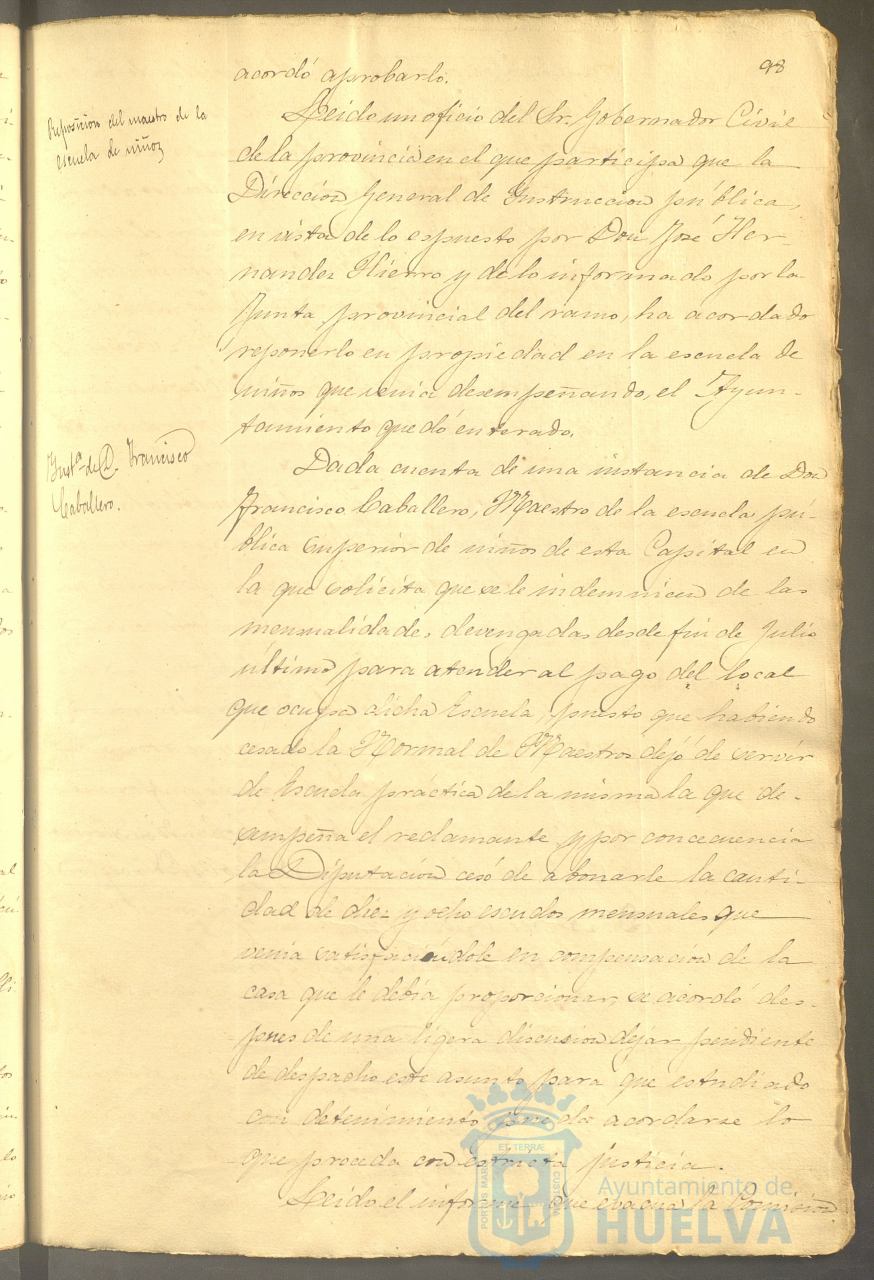 98
acordó aprobarlo.
Reposicion del maestro de la
escuela de niños
Leido un oficio del Sr. Gobernador Civil
de la provincia en el que participa que la
Direccion General de Instruccion pública,
en vista de lo espuesto por Don José Her-
nandez Hierro y de lo informado por la
Junta provincial del ramo, ha acordado
reponerlo en propiedad en la escuela de
niños que venia desempeñando, el Ayun-
tamiento quedó enterado.
Instª de D. Francisco
Caballero.
Dada cuenta de una instancia de Don
Francisco Caballero, Maestro de la escuela pu-
blica superior de niños de esta Capital en
la que solicita que se le indemnicen de las
mensualidades devengadas desde fin de Julio
último para atender al pago del local
que ocupa dicha Escuela, puesto que habiendo
cesado la Normal de Maestros dejó de servir
de Escuela práctica de la misma la que de-
sempeña el reclamante y por concecuencia
la Diputación cesó de abonarle la canti-
dad de diez y ocho escudos mensuales que
venia satisfaciéndole en compensacion de la
casa que le debía proporcionar, se acordó des-
pues de una ligera discusion dejar pendiente
de despacho este asunto para que estudiado
con detenimiento pueda acordarse lo
que proceda con estricta justicia.
Leido el informe que evacua la Comision
PORTUS MARIS ET TERRÆ CUSTODIA
Ayuntamiento de
HUELVA